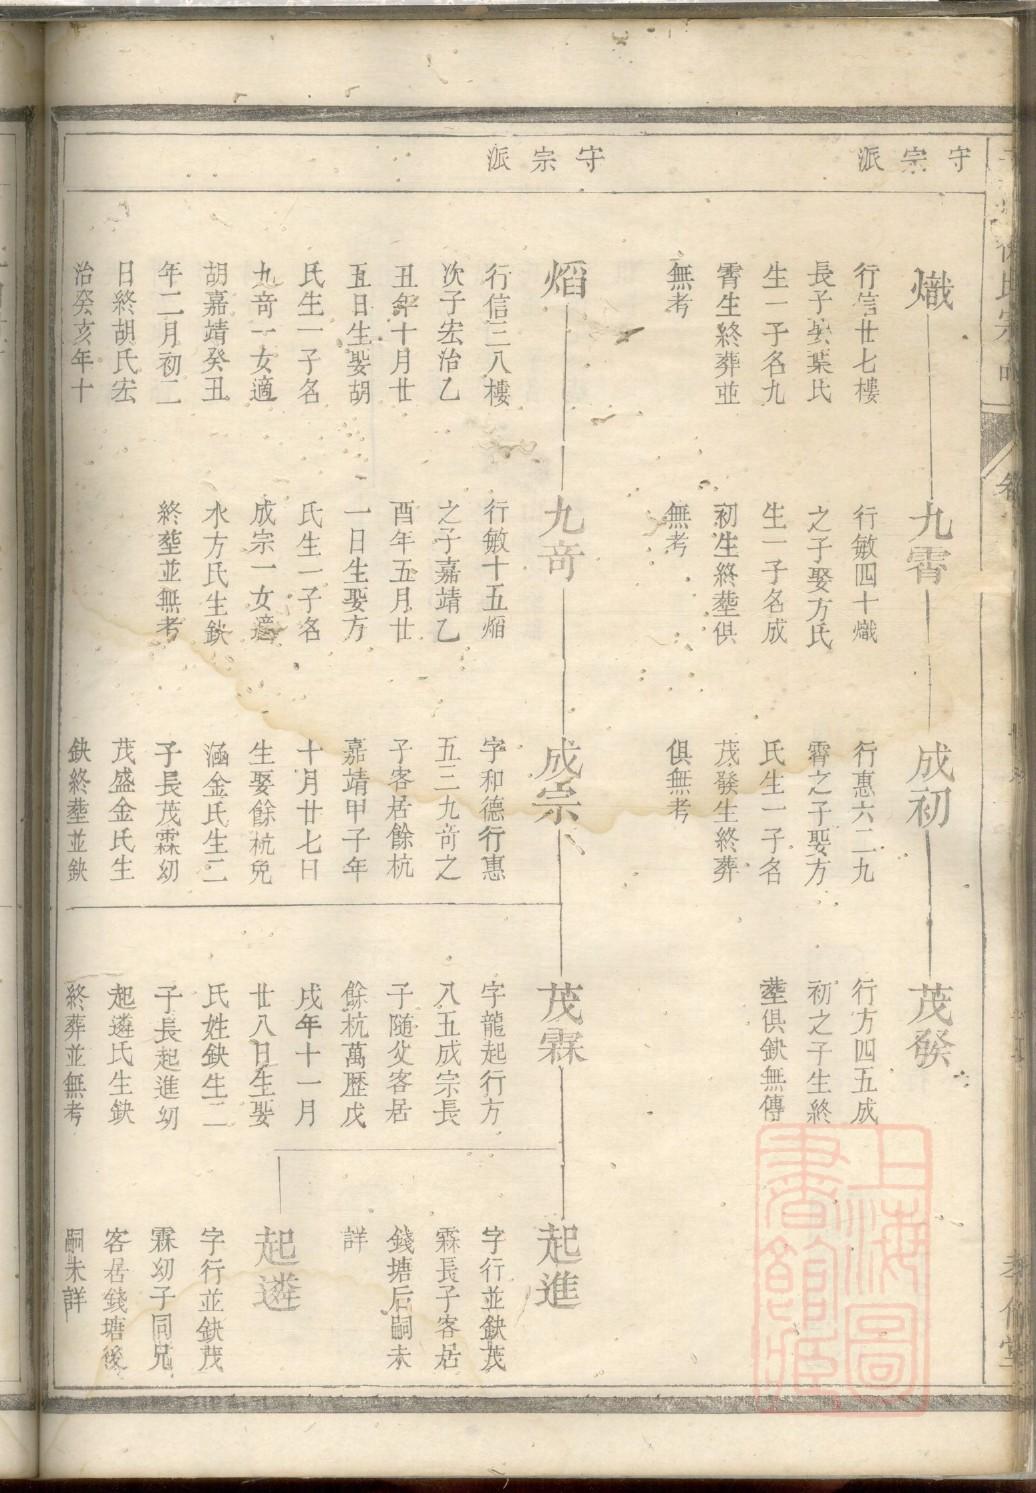 守宗派
守宗派
熾
行信廿七樓
長子娶葉氏
生一子名九
霄生終葬並
無考
九霄
行敏四十熾
之子娶方氏
生一子名成
初生終塟俱
無考
成初
行惠六二九
霄之子娶方
氏生一子名
茂發生終葬
俱無考
茂發
行方四五成
初之子生終
塟俱缺無傳
熖
行信三八樓
次子宏治乙
丑年十月廿
五日生娶胡
氏生一子名
九竒一女適
胡嘉靖癸丑
年二月初二
日終胡氏宏
治癸亥年十
九竒
行敏十五熖
之子嘉靖乙
酉年五月廿
一日生娶方
氏生一子名
成宗一女適
水方氏生缺
終塟並無考
成宗
字和德行惠
五三九竒之
子客居餘杭
嘉靖甲子年
十月廿七日
生娶餘杭兒
涵金氏生二
子長茂霖幼
茂盛金氏生
缺終塟並缺
茂霖
字龍起行方
八五成宗長
子隨父客居
餘杭萬歷戊
戌年十一月
廿八日生娶
氏姓缺生二
子長起進幼
起遴氏生缺
終葬並無考
起進
字行並缺茂
霖長子客居
錢塘后嗣未
詳
起遴
字行並缺茂
霖幼子同兄
客居錢塘後
嗣未詳
上海圖
書館藏